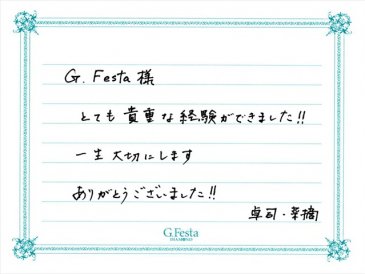 G. Festa 様
とても貴重な経験ができました!!
一生大切にします
ありがとうございました!!
卓司・菜摘
G.Festa
DIAMOND